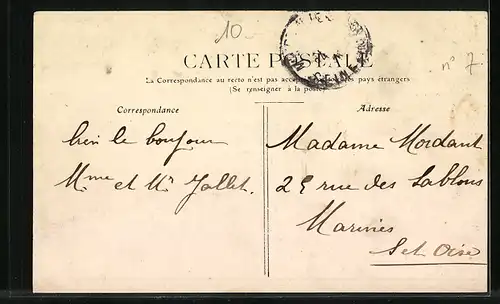 10.-
CARTE POSTALE
nº 7
La Correspondance au recto n'est pas acceptée par les pays étrangers
(Se renseigner à la poste)
Correspondance
Adresse
bien le bonjour
Mme et Mr Jallet.
Madame Mordant
25 rue des Sablons
Marines
S et Oise